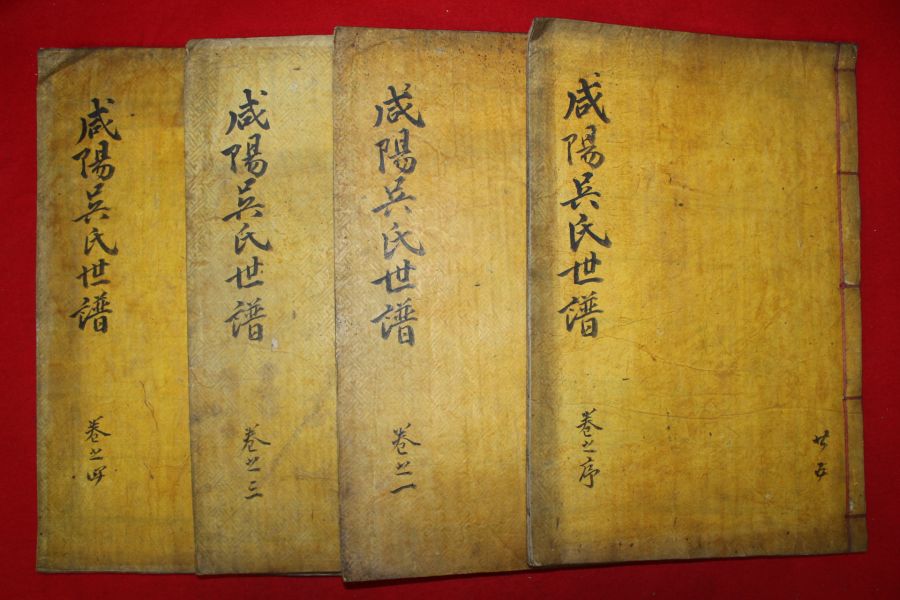 咸陽吳氏世譜
卷之序
共五
咸陽吳氏世譜
卷之一
咸陽吳氏世譜
卷之三
咸陽吳氏世譜
卷之四